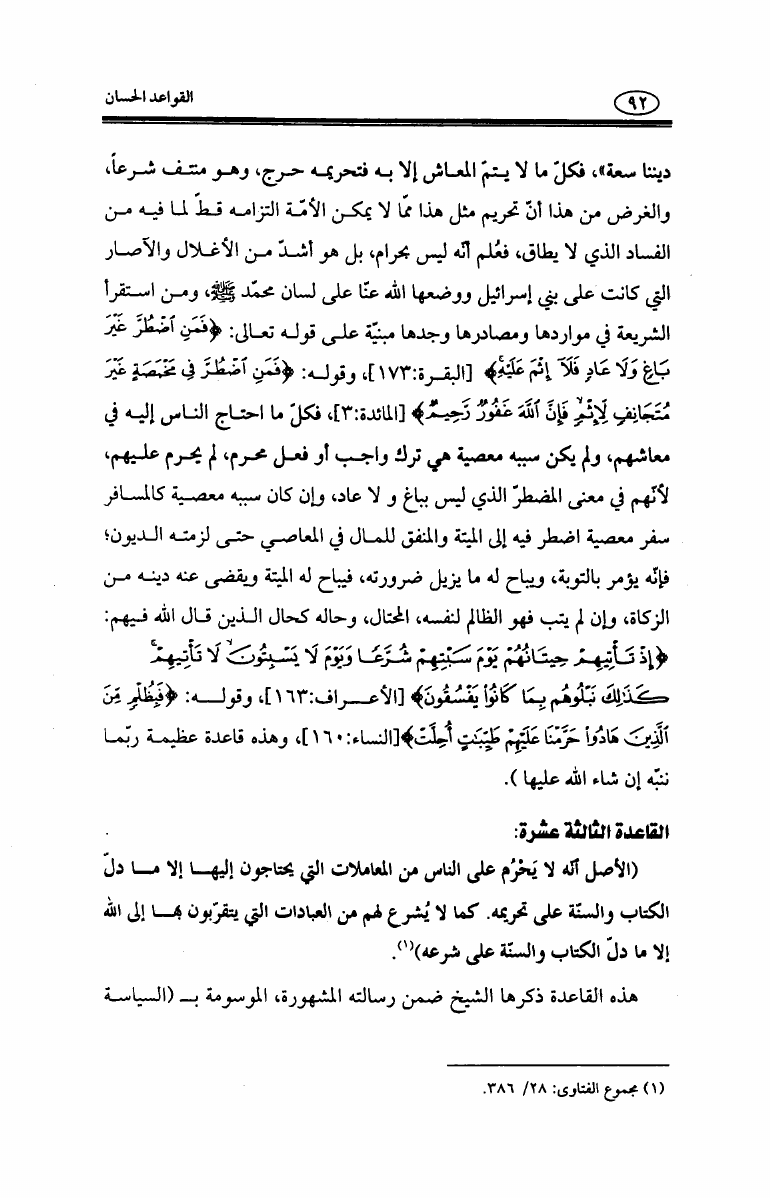 القواعد الحسان
٩٢
ديننا سعة»، فكلّ ما لا يتمّ المعاش إلا به فتحريمه حرج، وهو منتف شرعاً،
والغرض من هذا أنّ تحريم مثل هذا ممّا لا يمكن الأمّة التزامه قطّ لما فيه من
الفساد الذي لا يطاق، فعُلم أنّه ليس بحرام، بل هو أشدّ من الأغلال والآصار
التي كانت على بني إسرائيل ووضعها الله عنّا على لسان محمّد ﷺ، ومن استقرأ
الشريعة في مواردها ومصادرها وجدها مبنيّة على قوله تعالى: ﴿فَمَنِ ٱضْطُرَّ غَيْرَ
بَاغٍ وَلَا عَادٍ فَلَآ إِثْمَ عَلَيْهِ﴾ [البقرة:١٧٣]، وقوله: ﴿فَمَنِ ٱضْطُرَّ فِى مَخْمَصَةٍ غَيْرَ
مُتَجَانِفٍ لِّإِثْمٍ فَإِنَّ ٱللَّهَ غَفُورٌ رَّحِيمٌ﴾ [المائدة:٣]، فكلّ ما احتاج الناس إليه في
معاشهم، ولم يكن سببه معصية هي ترك واجب أو فعل محرم، لم يحرم عليهم،
لأنّهم في معنى المضطرّ الذي ليس بباغ و لا عاد، وإن كان سببه معصية كالمسافر
سفر معصية اضطر فيه إلى الميتة والمنفق للمال في المعاصي حتى لزمته الديون؛
فإنّه يؤمر بالتوبة، ويباح له ما يزيل ضرورته، فيباح له الميتة ويقضى عنه دينه من
الزكاة، وإن لم يتب فهو الظالم لنفسه، المحتال، وحاله كحال الذين قال الله فيهم:
﴿إِذْ تَأْتِيهِمْ حِيتَانُهُمْ يَوْمَ سَبْتِهِمْ شُرَّعًا وَيَوْمَ لَا يَسْبِتُونَ لَا تَأْتِيهِمْ
كَذَٰلِكَ نَبْلُوهُم بِمَا كَانُوا۟ يَفْسُقُونَ﴾ [الأعراف:١٦٣]، وقوله: ﴿فَبِظُلْمٍ مِّنَ
ٱلَّذِينَ هَادُوا۟ حَرَّمْنَا عَلَيْهِمْ طَيِّبَٰتٍ أُحِلَّتْ﴾[النساء:١٦٠]، وهذه قاعدة عظيمة ربّما
ننبّه إن شاء الله عليها ).
القاعدة الثالثة عشرة:
(الأصل أنّه لا يَحْرُم على الناس من المعاملات التي يحتاجون إليها إلا ما دلّ
الكتاب والسنّة على تحريمه. كما لا يُشرع لهم من العبادات التي يتقرّبون بها إلى الله
إلا ما دلّ الكتاب والسنّة على شرعه)(١).
هذه القاعدة ذكرها الشيخ ضمن رسالته المشهورة، الموسومة بـ (السياسة
(١) مجموع الفتاوى: ٢٨/ ٣٨٦.